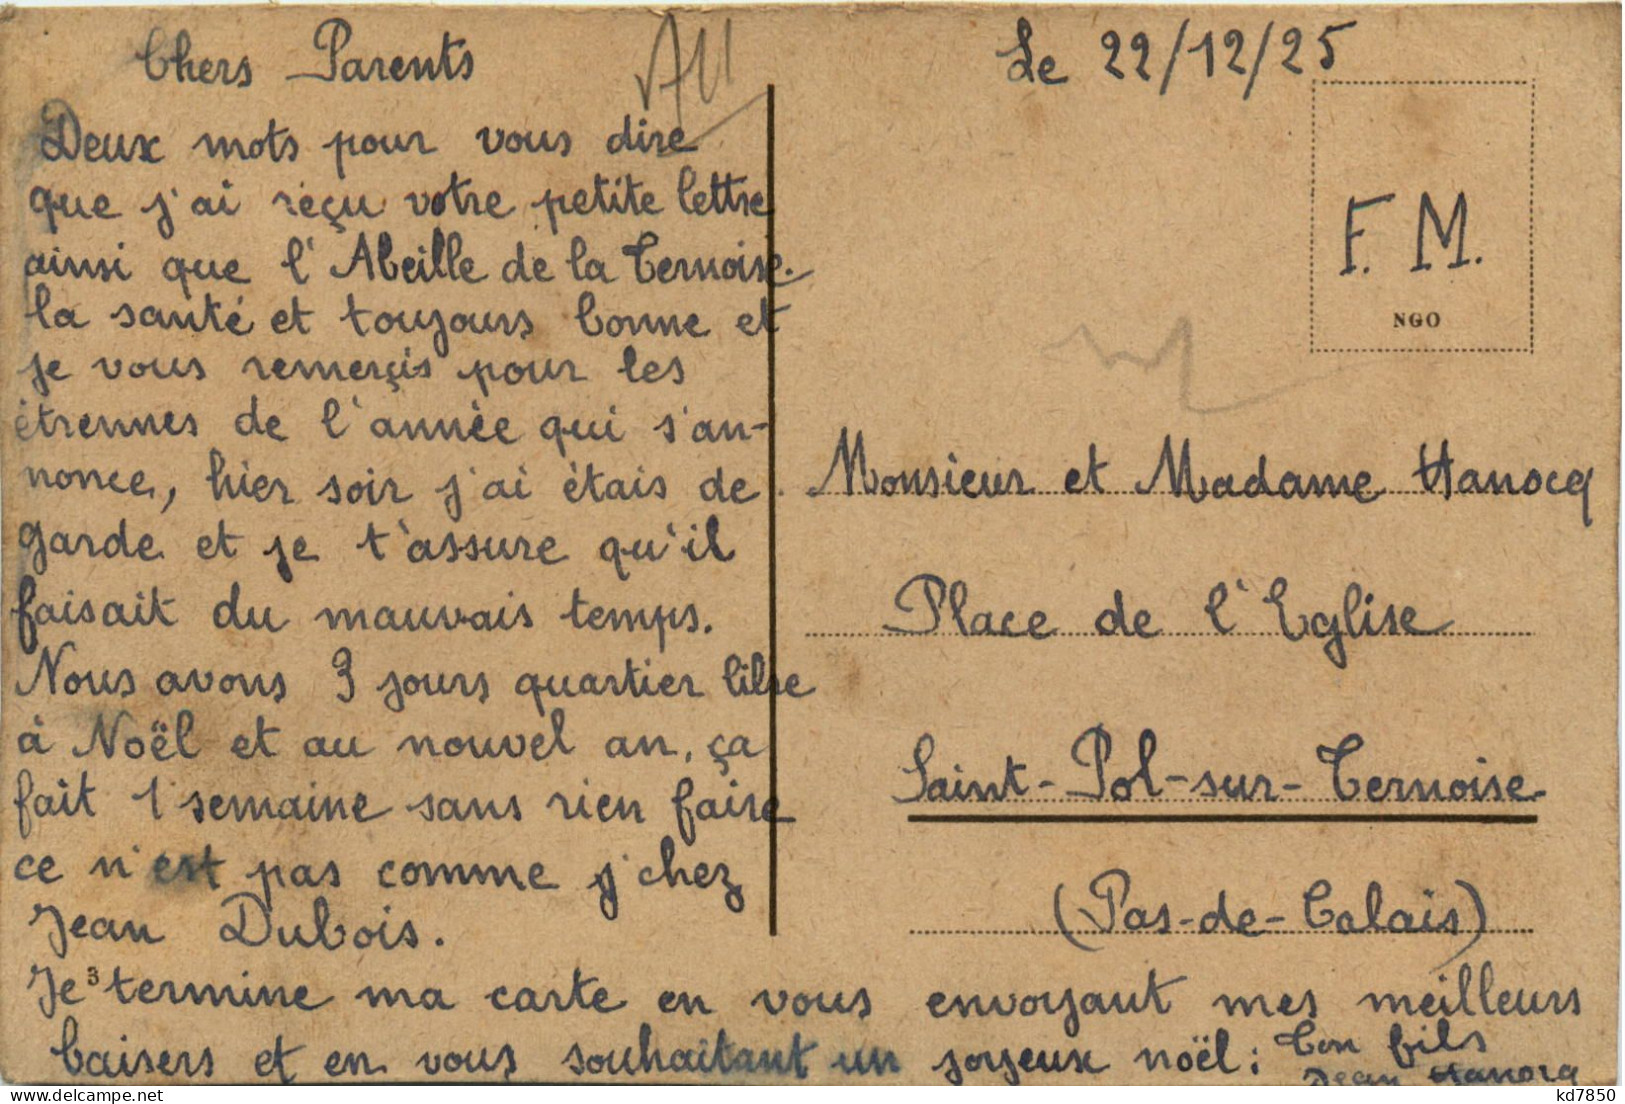 Chers Parents
Deux mots pour vous dire
que j'ai réçu votre petite lettre
ainsi que l'Abeille de la Ternoise.
la santé et toujours bonne et
je vous remerçis pour les
étrennes de l'année qui s'an-
nonce, hier soir j'ai étais de
garde et je t'assure qu'il
faisait du mauvais temps.
Nous avons 3 jours quartier libre
à Noël et au nouvel an, ça
fait 1 semaine sans rien faire
ce n'est pas comme j'chez
Jean Dubois.
Je termine ma carte en vous envoyant mes meilleurs
baisers et en vous souhaitant un joyeux noël : Ton fils
Jean Hanocq
3
Le 22/12/25
F. M.
NGO
Monsieur et Madame Hanocq
Place de l'Eglise
Saint-Pol-sur-Ternoise
(Pas-de-Calais)
kd7850